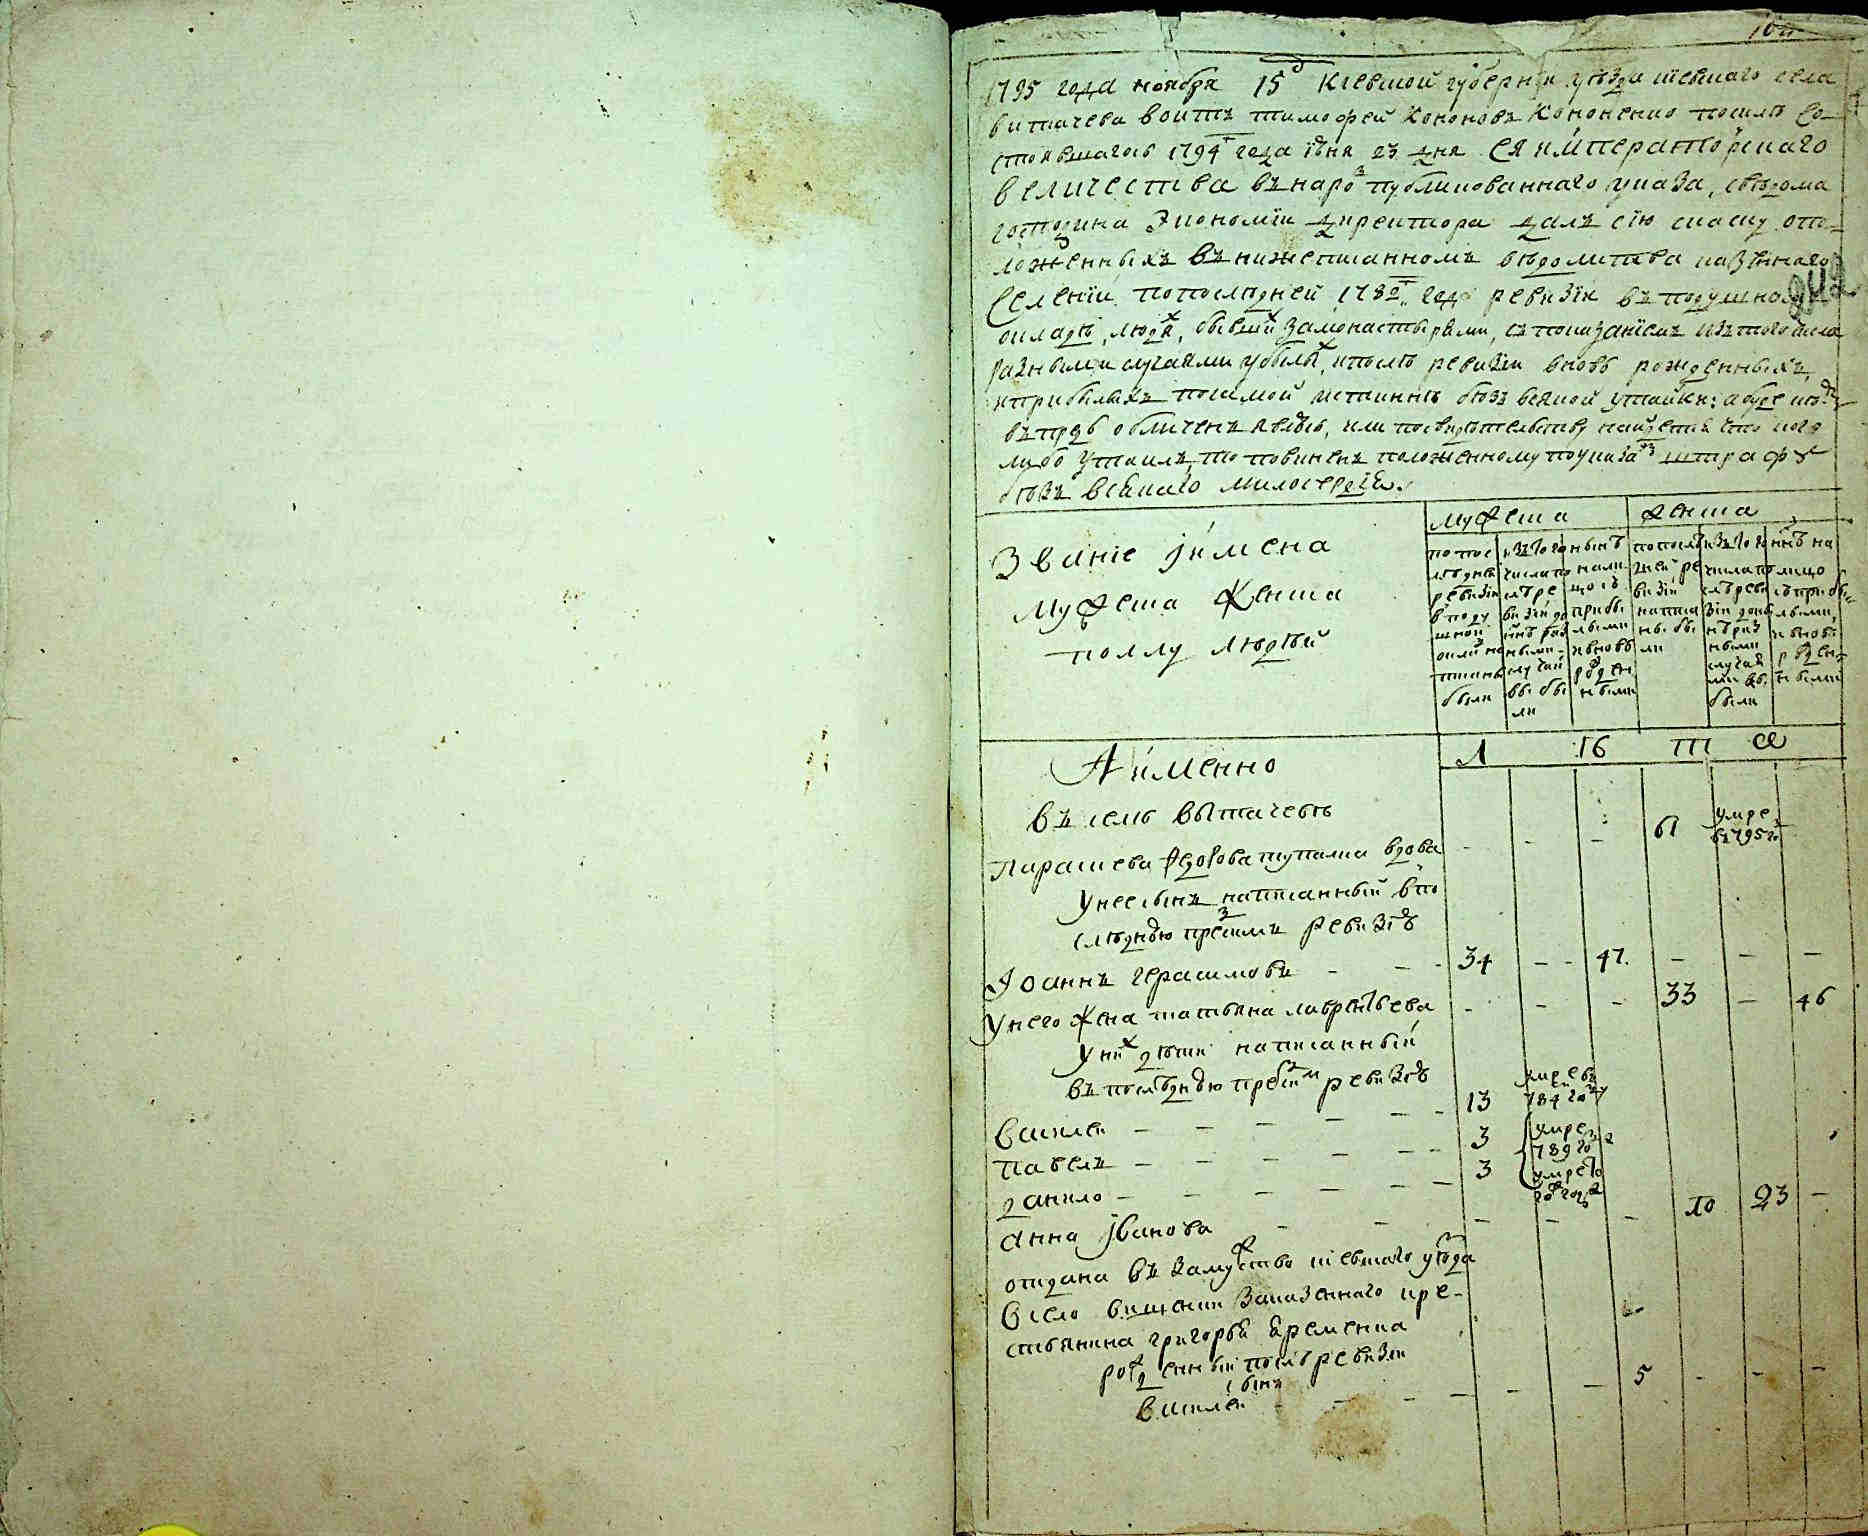 1795 года ноября 15 д Киевской губернїи уезда киевскаго села
витачева войтъ тимофей Кононовъ Кононенко посилѣ со-
стоявшагось 1794 г года їюня 23 дня ея императорскаго
величества в народ публикованнаго указа, сведома
господина Экономїи директора далъ сїю скаску о по-
ложенныхъ в нижеписанномъ вѣдомства казеннаго
селенїи по последней 1782 г года ревизїи в подушной
окладъ, людях, бывших за монастырями, с показанїемъ из того числа
разными случаями убылых, и после ревизїи вновь рожденныхъ,
и прибылыхъ по самой истиннѣ безъ всякой утайки: а буде кто
впредь обличенъ явлюсь, или по свидетельству найдется что кого
либо утаилъ то повиненъ положенному по указам штрафу
безъ всякаго милосердїя.
Званїе и имена
мужеска женска
полу людей
мужеска женска
по последней ревизїи в подушной окладъ написаны были
из того числа после ревизїи до нынѣ разными случаи выбыли
нынѣ на лицо съ прибылыми и вновь рожденными
по последней ревизїи написаны были
из того числа после ревизїи до нынѣ разными случаями выбыли
нынѣ на лицо съ прибылыми и вновь рожденными
А именно
лѣта
въ селѣ Витачевѣ
Параскева Федорова вдова - - - 61 умре в 1795 го
У нее сынъ написанный в по
следнюю пред симъ ревизїю
Iоаннъ Герасимовъ - - - 34 - - 47. - - -
У него жена татьяна лаврентьева - - - 33 - 46
У них дети написанный
въ последнюю пред сим ревизїю
Василей - - - - - - 13 умре въ 784 году
павелъ - - - - - - 3 умре 789 года
данило - - - - - - 3 умре того ж года
Анна Iванова - - - - - 10 23 -
отдана въ замужство киевскаго уезда
в село за казеннаго кре-
стьянина григорья Яременка
рожденный после ревизїи
сынъ
Василей - - - - - - 5 - - -